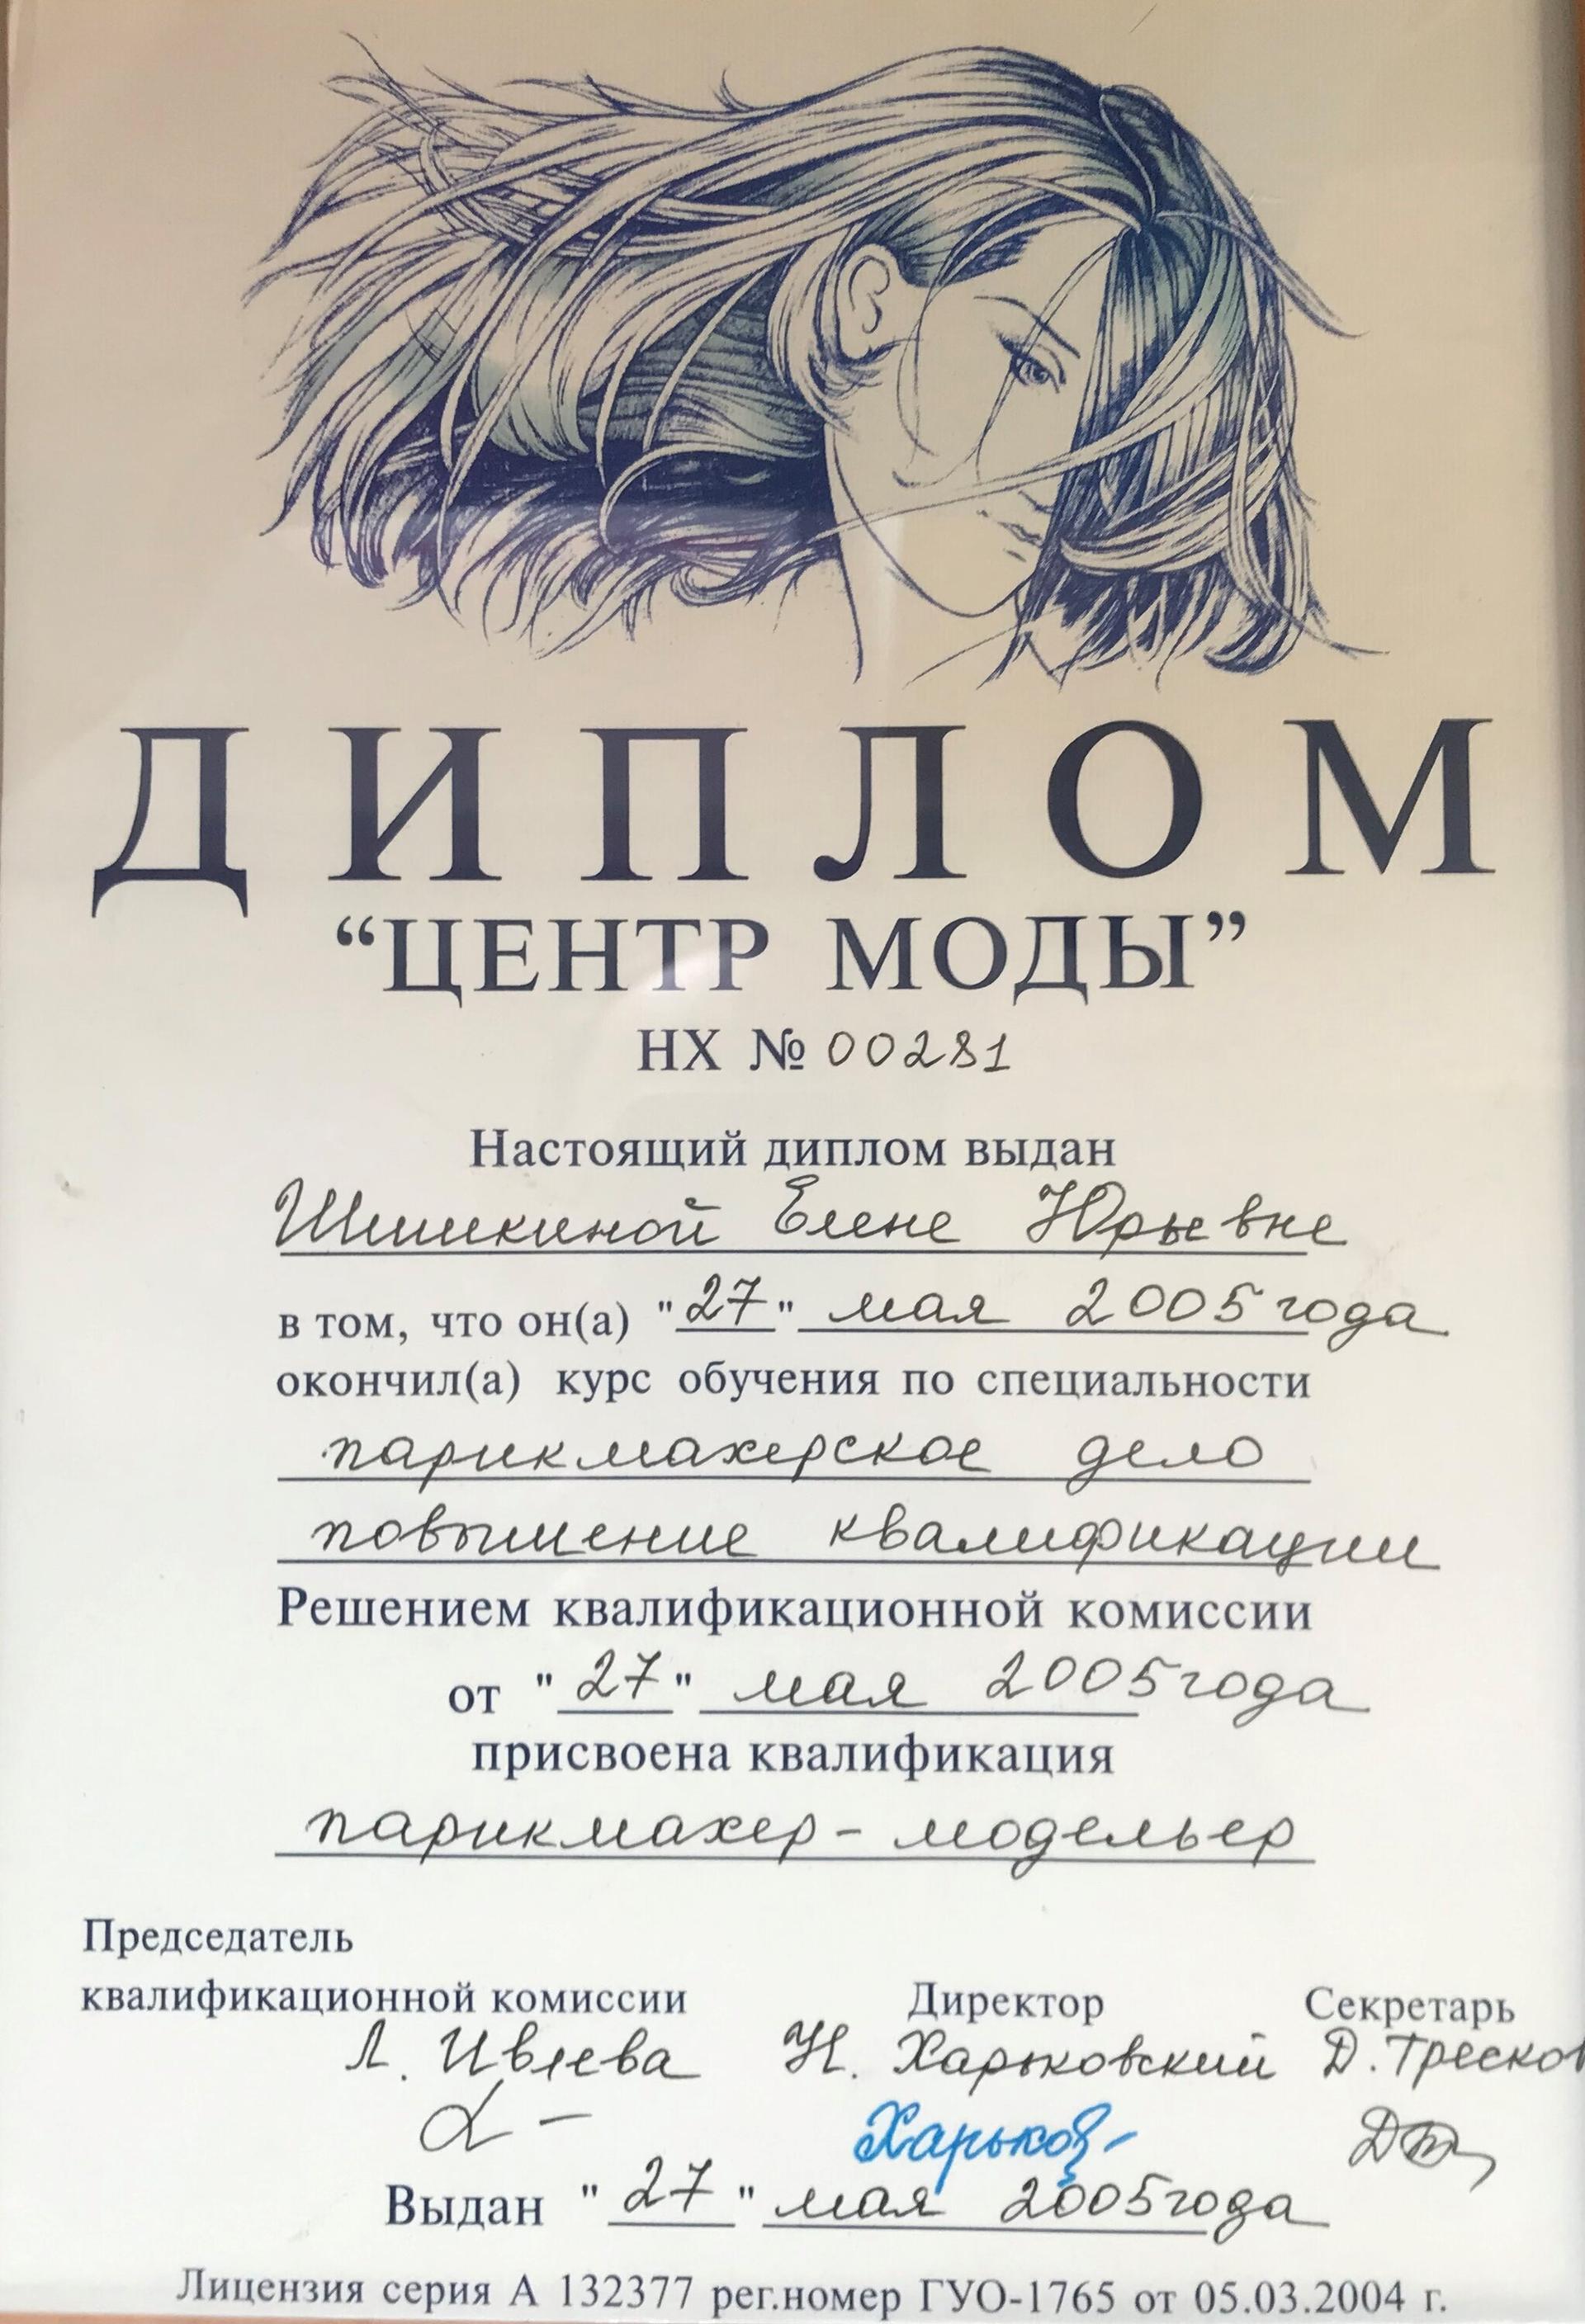 ДИПЛОМ
“ЦЕНТР МОДЫ”
НХ № 00281
Настоящий диплом выдан
Шишкиной Елене Юрьевне
в том, что он(а) "27" мая 2005 года
окончил(а) курс обучения по специальности
парикмахерское дело
повышение квалификации
Решением квалификационной комиссии
от "27" мая 2005 года
присвоена квалификация
парикмахер - модельер
Председатель
квалификационной комиссии Директор Секретарь
Л. Ивлева Н. Харьковский Д. Тресков
Харьков
Выдан "27" мая 2005 года
Лицензия серия А 132377 рег.номер ГУО-1765 от 05.03.2004 г.